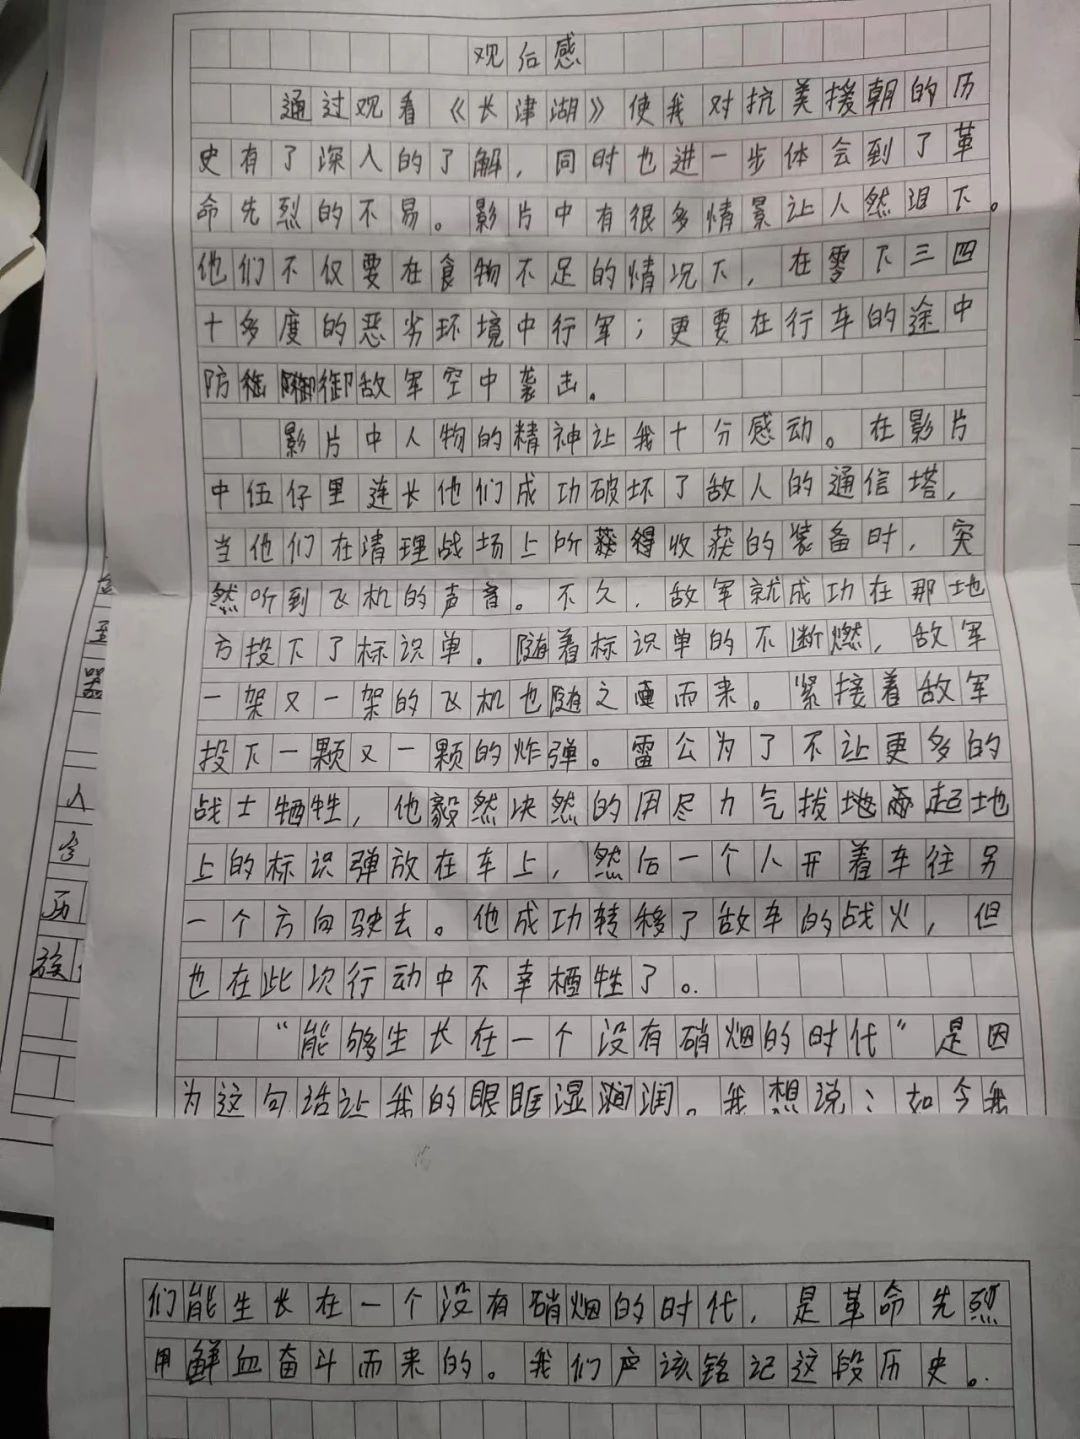 观后感
通过观看《长津湖》使我对抗美援朝的历
史有了深入的了解，同时也进一步体会到了革
命先烈的不易。影片中有很多情景让人然泪下。
他们不仅要在食物不足的情况下，在零下三四
十多度的恶劣环境中行军；更要在行车的途中
防御敌军空中袭击。
影片中人物的精神让我十分感动。在影片
中伍仔里连长他们成功破坏了敌人的通信塔，
当他们在清理战场上所收获的装备时，突
然听到飞机的声音。不久，敌军就成功在那地
方投下了标识单。随着标识单的不断燃，敌军
一架又一架的飞机也随之而来。紧接着敌军
投下一颗又一颗的炸弹。雷公为了不让更多的
战士牺牲，他毅然决然的用尽力气拔起地
上的标识弹放在车上，然后一个人开着车往另
一个方向驶去。他成功转移了敌车的战火，但
也在此次行动中不幸栖牲了。
“能够生长在一个没有硝烟的时代”是因
为这句话让我的眼眶湿润。我想说：如今我
们能生长在一个没有硝烟的时代，是革命先烈
用鲜血奋斗而来的。我们应该铭记这段历史。
人
历
族